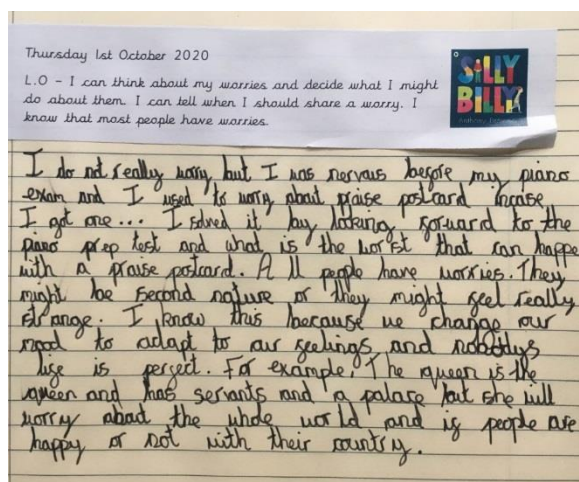 Thursday 1st October 2020
L.O - I can think about my worries and decide what I might
do about them. I can tell when I should share a worry. I
know that most people have worries.
SILLY
BILLY
I do not really worry but I was nervous before my piano
exam and I used to worry about praise postcard incase
I got one... I solved it by looking forward to the
piano prep test and what is the worst that can happe
with a praise postcard. A ll people have worries. They
might be second nature or they might feel really
strange. I know this because we change our
mood to adapt to our feelings and nobodys
life is perfect. For example, The queen is the
queen and has servants and a palace but she will
worry about the whole world and if people are
happy or not with their country.